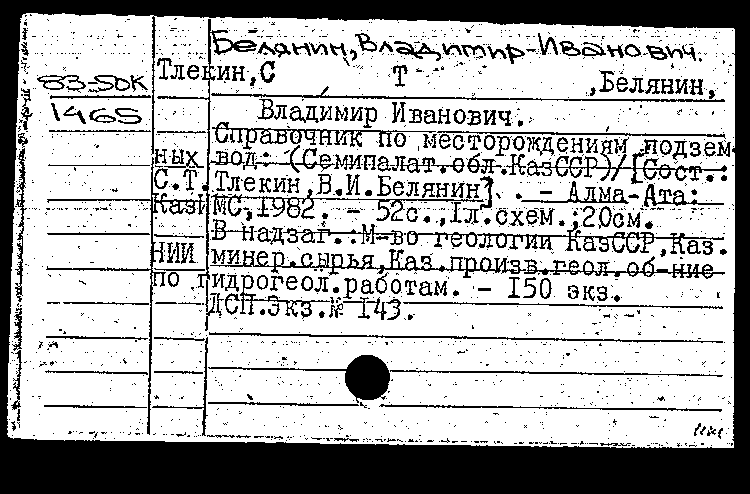 Белянин, Владимир Иванович.
83-50К
Тлекин,С Т ,Белянин,
1465
Владимир Иванович.
Справочник по месторождениям подзем-
ных вод: (Семипалат.обл.КазССР)/[Сост.:
С.Т.Тлекин,В.И.Белянин]. - Алма-Ата:
КазИМС,1982. - 52с.,1л.схем.;20см.
В надзаг.:М-во геологии КазССР,Каз.
НИИ минер.сырья,Каз.произв.геол.об-ние
по гидрогеол.работам. - 150 экз.
ДСП.Экз.№ 143.